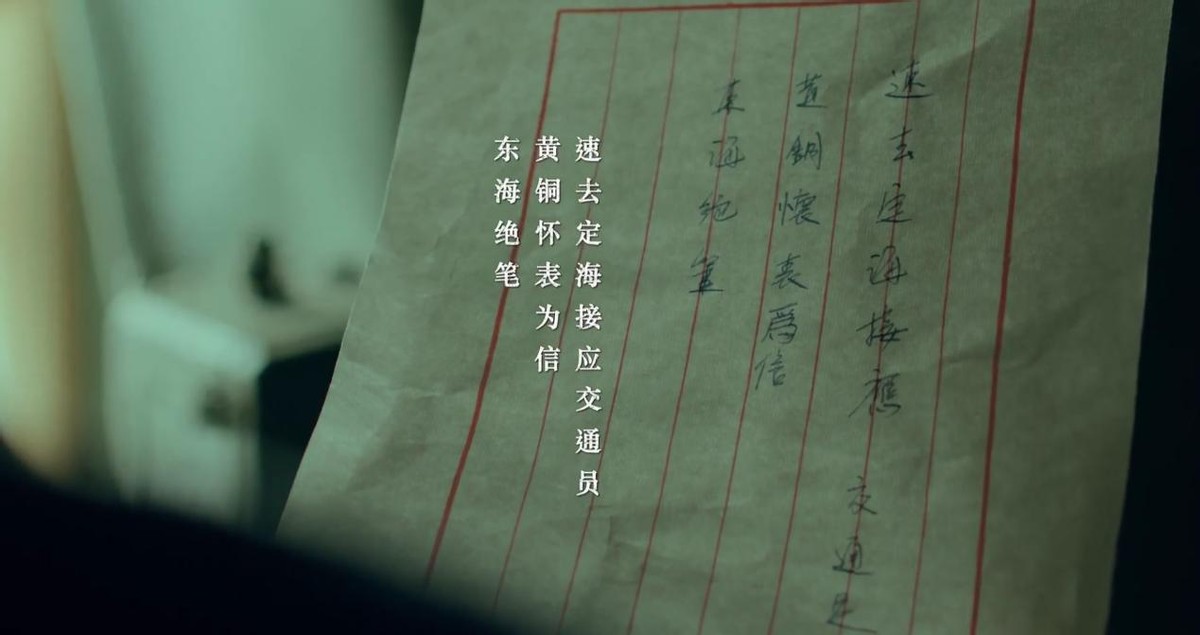 速去定海接應 交通員
黃銅懷表爲信
東海絶筆
速去定海接应交通员
黄铜怀表为信
东海绝笔